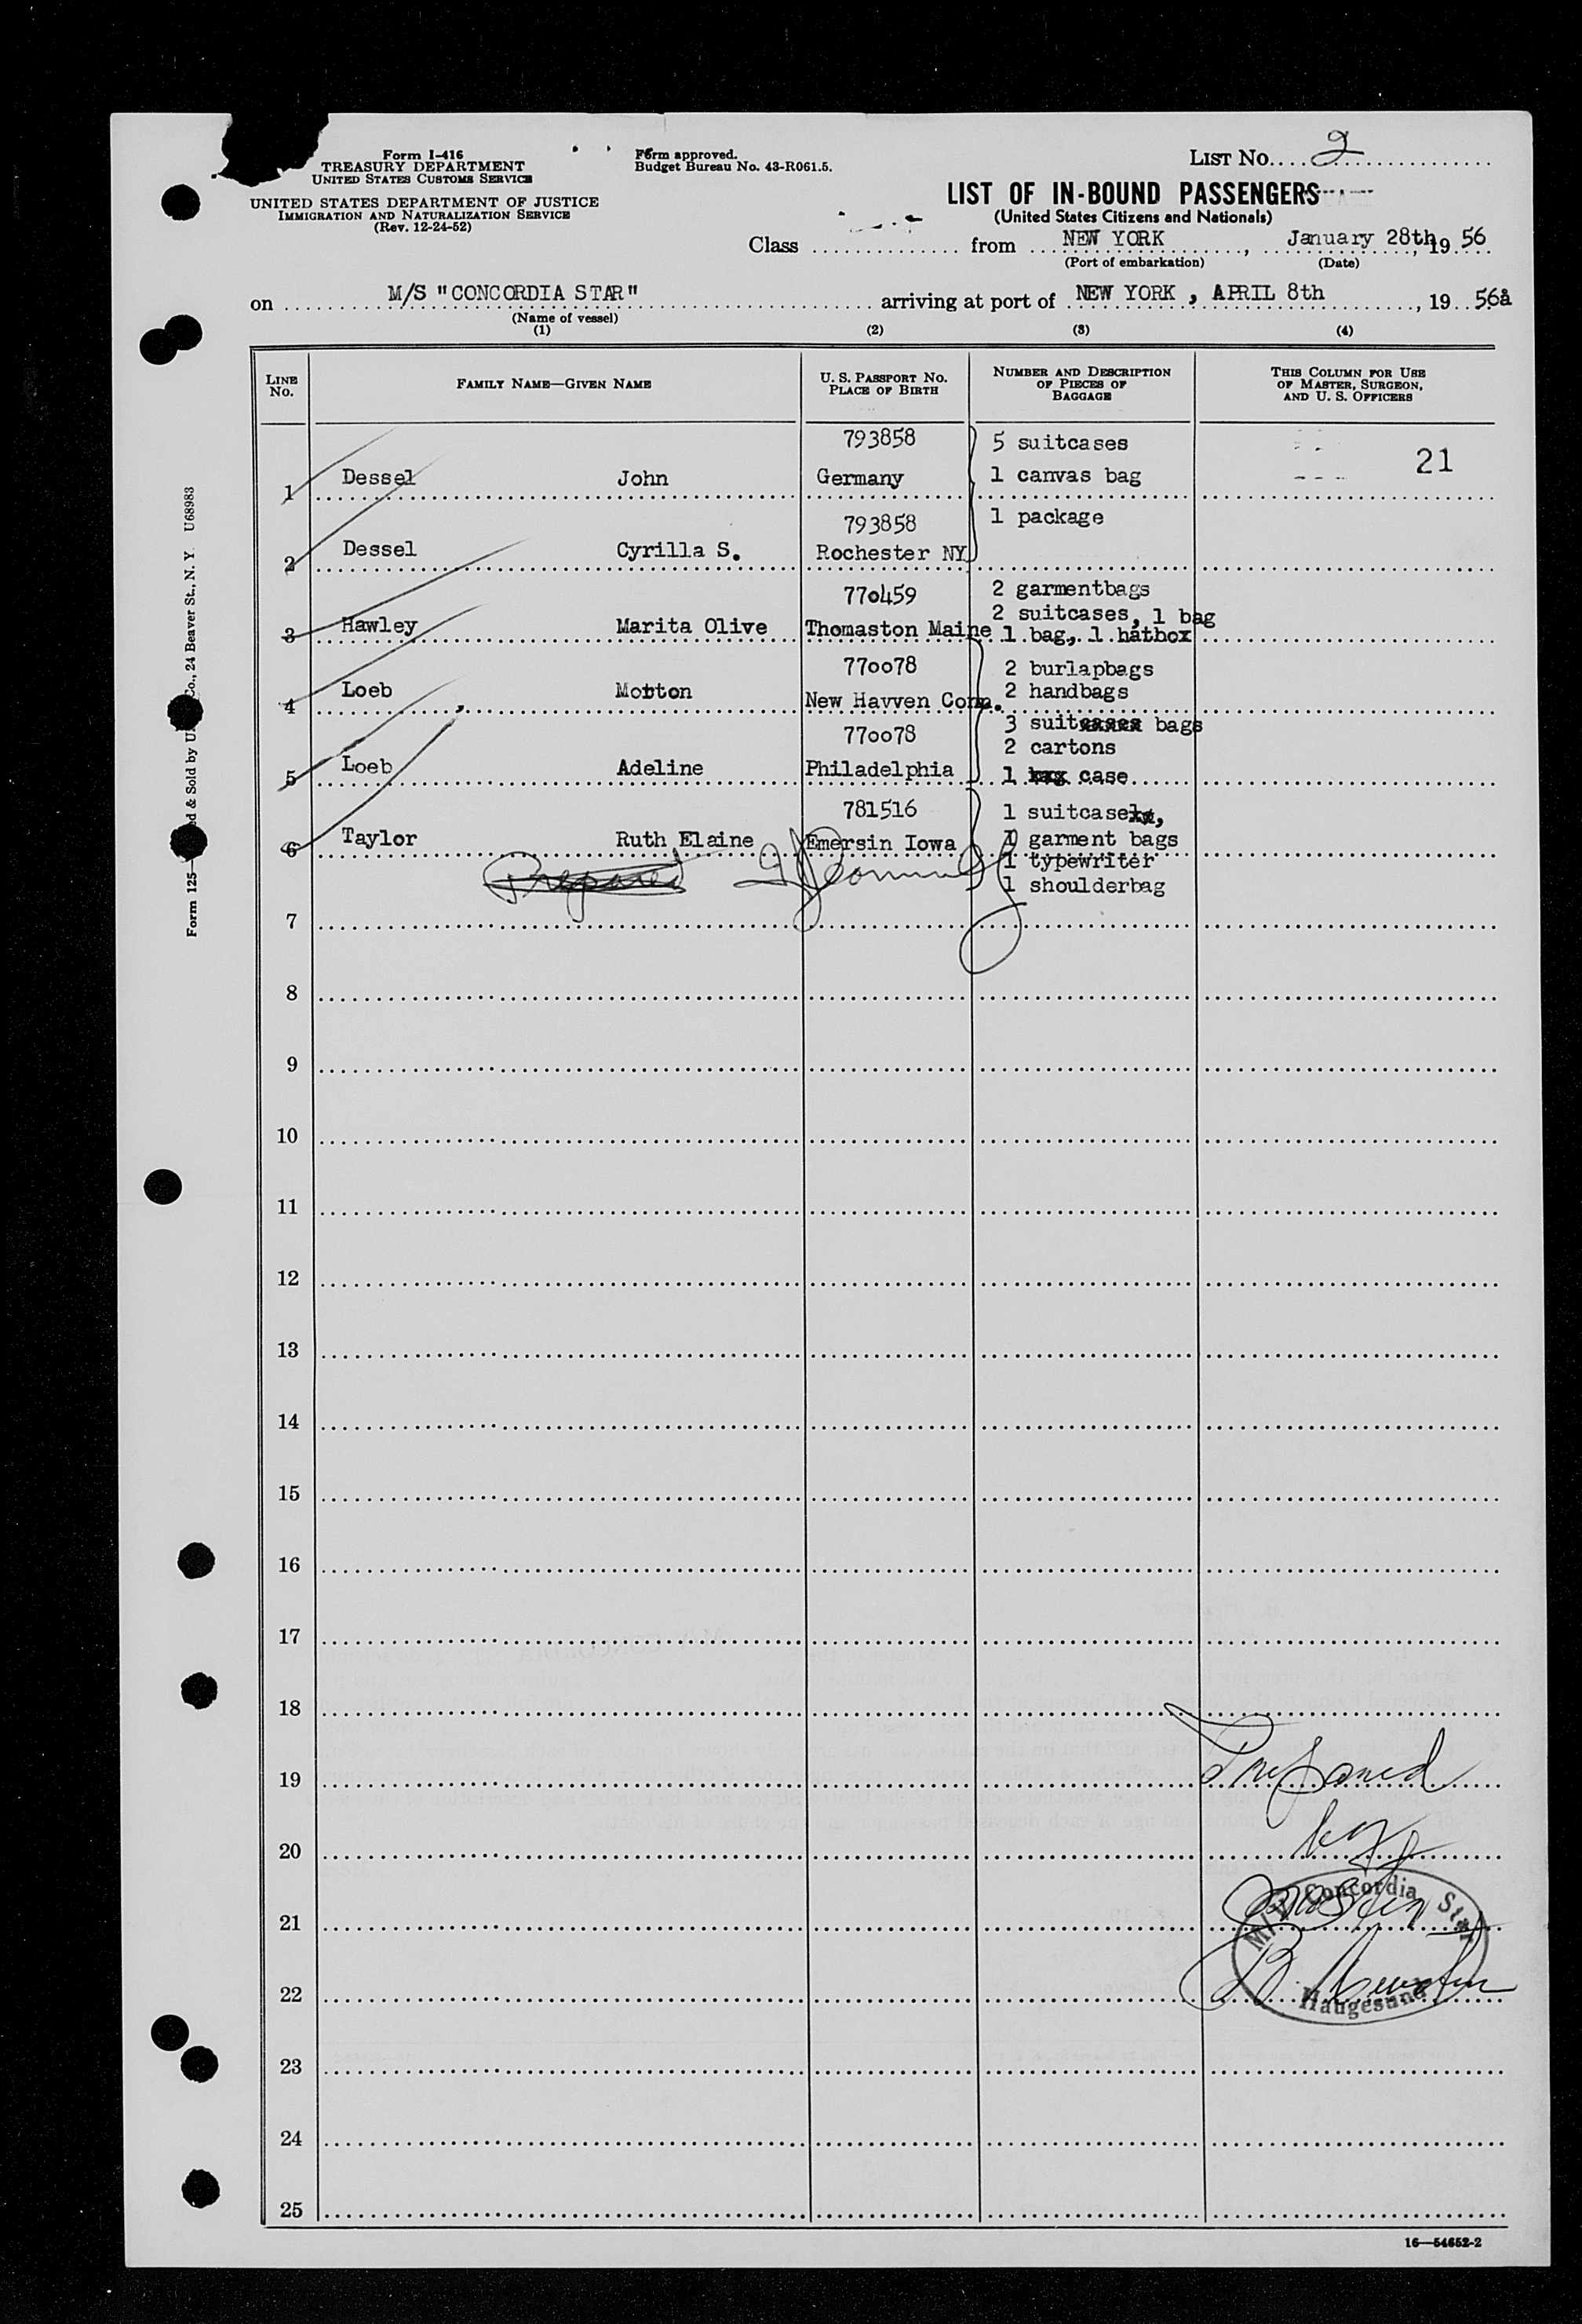 Form I-416
TREASURY DEPARTMENT
UNITED STATES CUSTOMS SERVICE
UNITED STATES DEPARTMENT OF JUSTICE
IMMIGRATION AND NATURALIZATION SERVICE
(Rev. 12-24-52)
Form approved.
Budget Bureau No. 43-R061.5.
LIST No. 2
LIST OF IN-BOUND PASSENGERS
(United States Citizens and Nationals)
Class from NEW YORK, January 28th, 19 56
(Port of embarkation) (Date)
on M/S "CONCORDIA STAR" arriving at port of NEW YORK, APRIL 8th, 19 56å
(Name of vessel)
(1) (2) (3) (4)
LINE No. FAMILY NAME—GIVEN NAME U. S. PASSPORT No. PLACE OF BIRTH NUMBER AND DESCRIPTION OF PIECES OF BAGGAGE THIS COLUMN FOR USE OF MASTER, SURGEON, AND U. S. OFFICERS
793858 5 suitcases
21
1 Dessel John Germany 1 canvas bag
793858 1 package
2 Dessel Cyrilla S. Rochester NY
770459 2 garmentbags
2 suitcases, 1 bag
3 Hawley Marita Olive Thomaston Maine 1 bag, 1 hatbox
770078 2 burlapbags
2 handbags
4 Loeb Morton New Havven Conn.
3 suitcases bags
770078 2 cartons
5 Loeb Adeline Philadelphia 1 bag case
781516 1 suitcase,
6 Taylor Ruth Elaine Emersin Iowa garment bags
1 typewriter
Prepared 1 shoulderbag
7
8
9
10
11
12
13
14
15
16
17
18
19 Prepared
20 by
21
22
23
24
25
M/S Concordia Star
Haugesund
16—54652-2
Form 125— ed & Sold by U Co., 24 Beaver St., N. Y. U68983